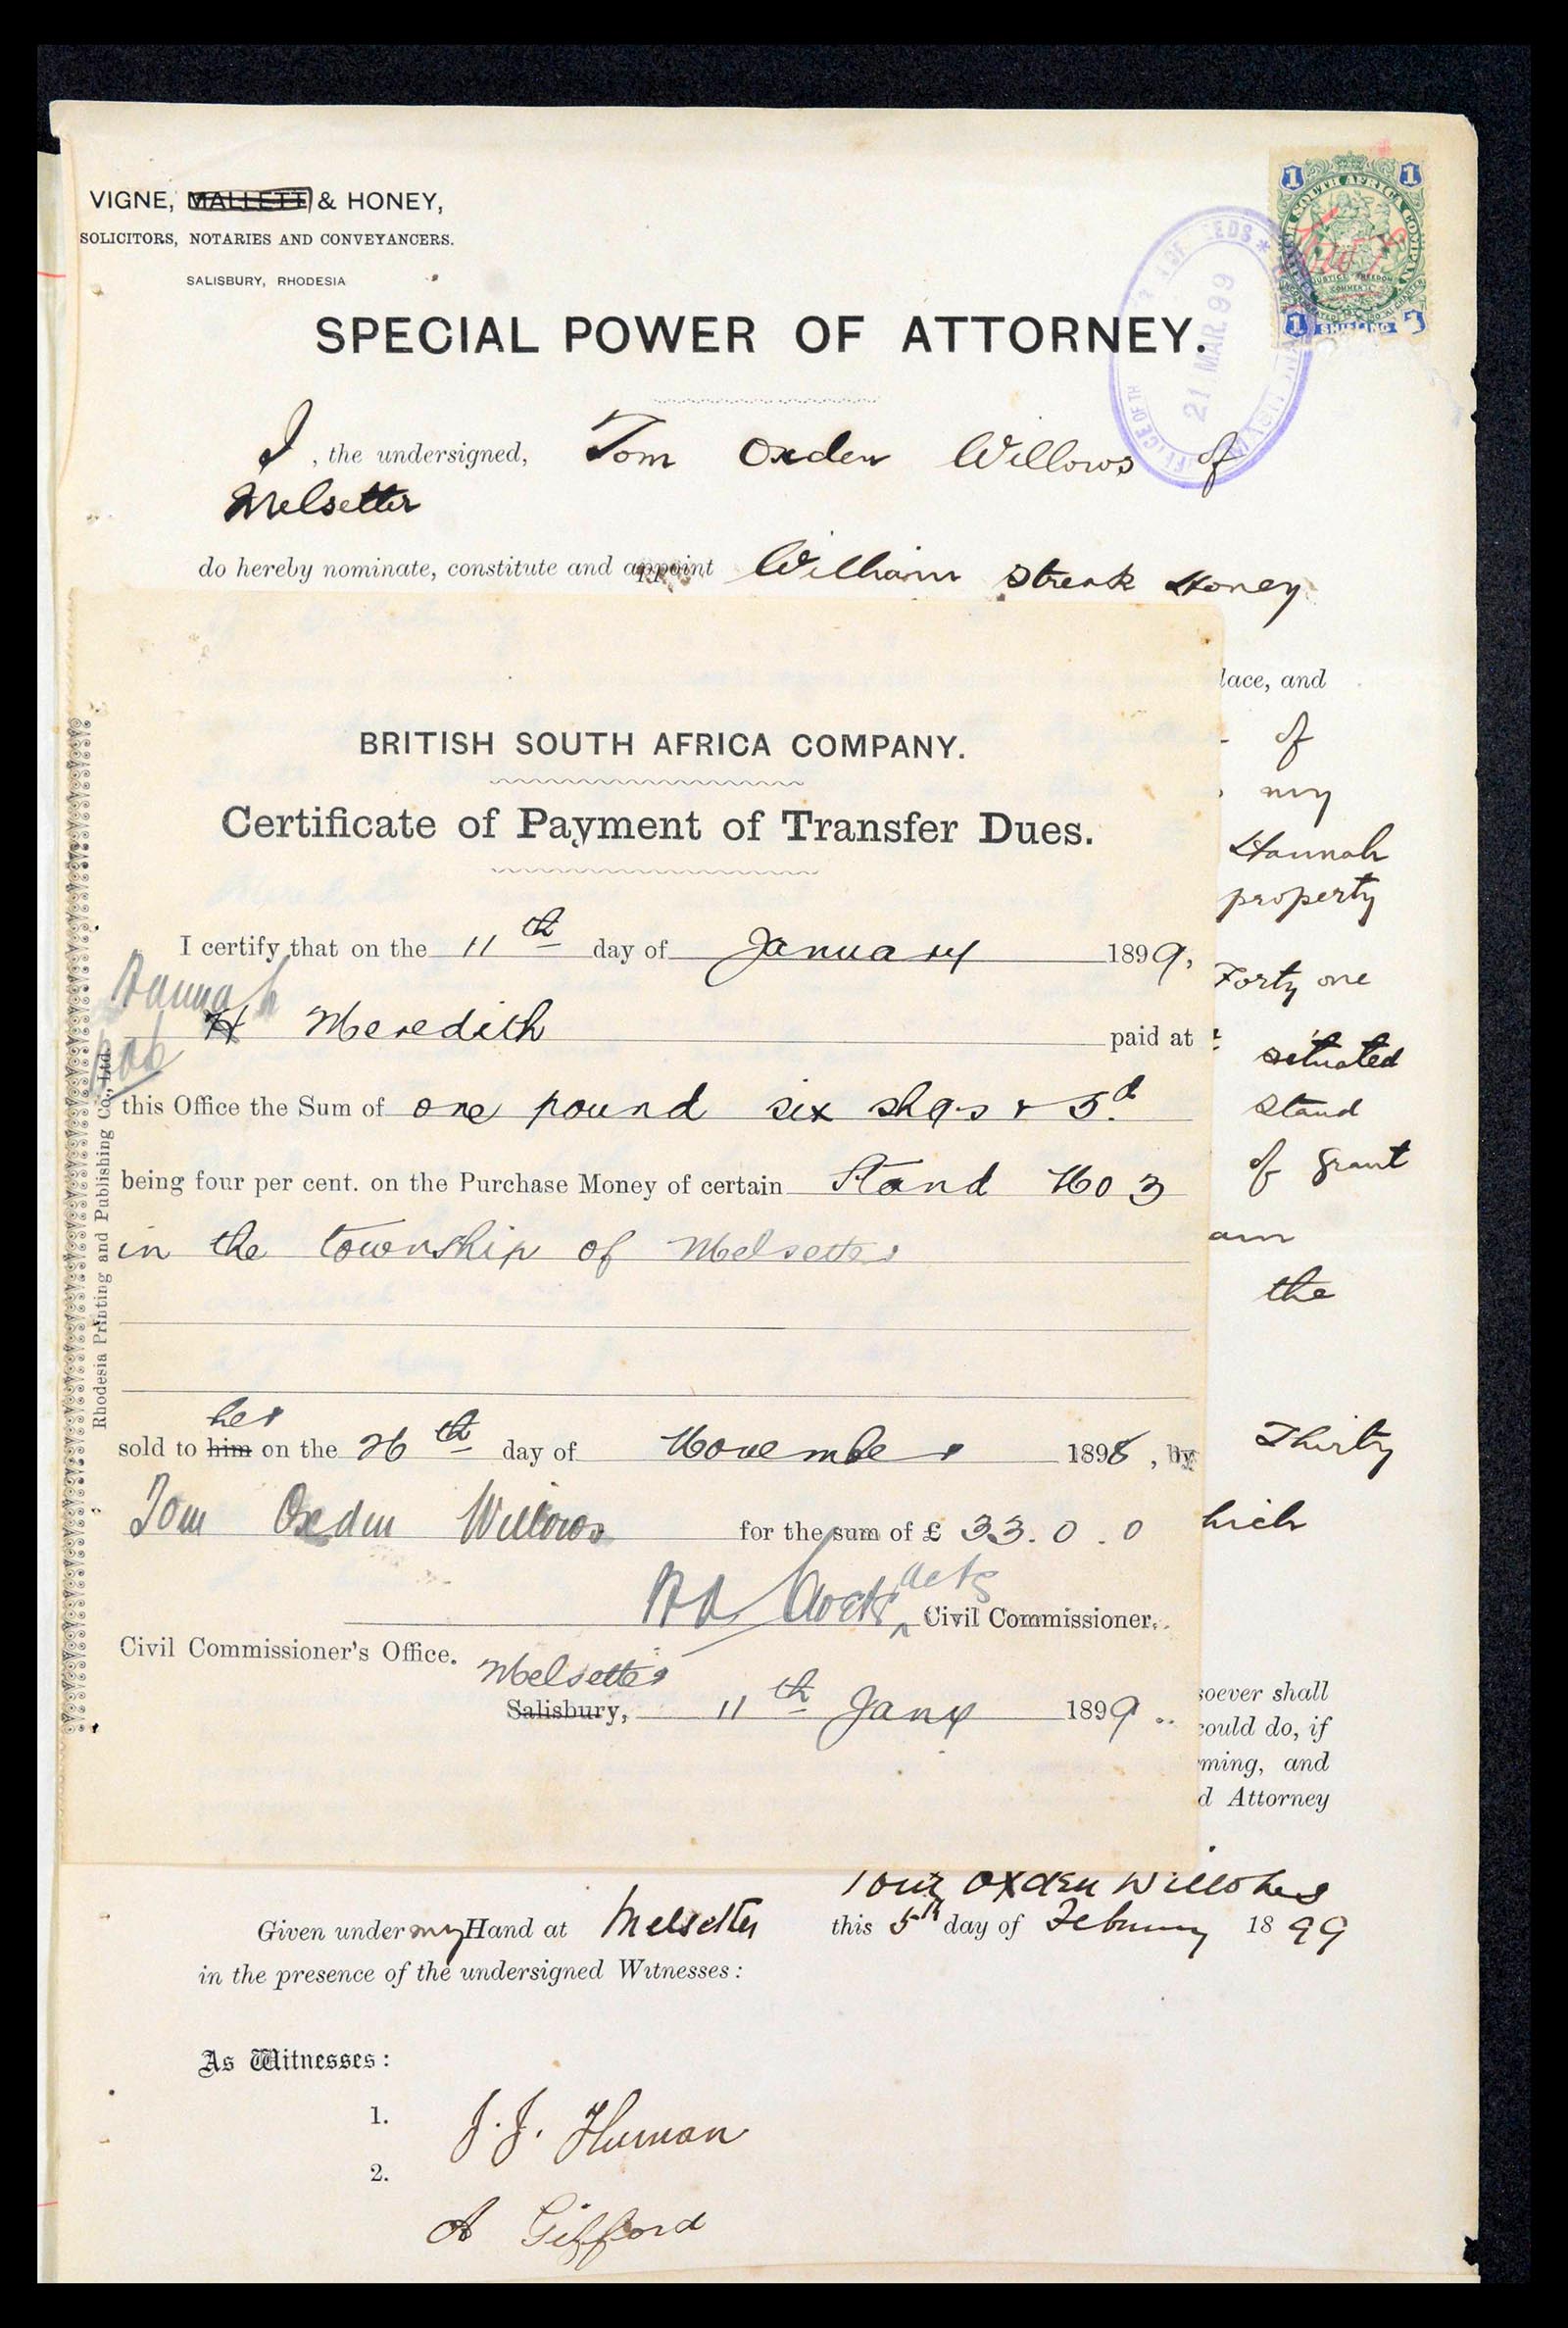 VIGNE, MALLETT & HONEY,
SOLICITORS, NOTARIES AND CONVEYANCERS.
SALISBURY, RHODESIA
1 1
SOUTH AFRICA COMPANY
JUSTICE FREEDOM
COMMERCE
1 SHILLING 1
21 MAR. 99
SPECIAL POWER OF ATTORNEY.
I, the undersigned, Tom Oxden Willows of
Melsetter
do hereby nominate, constitute and appoint William Streak Honey
lace, and
of
my
Hannah
property
Forty one
situated
Stand
of grant
am
the
Thirty
hich
soever shall
could do, if
ming, and
d Attorney
BRITISH SOUTH AFRICA COMPANY.
Certificate of Payment of Transfer Dues.
I certify that on the 11th day of January 1899,
Hannah
H Meredith paid at
this Office the Sum of one pound six shgs & 5d
being four per cent. on the Purchase Money of certain Stand No 3
in the township of Melsetter
her
sold to him on the 26th day of November 1898, by
Tom Oxden Willows for the sum of £ 33.0.0
actg Civil Commissioner.
Civil Commissioner's Office.
Melsetter
Salisbury, 11th Jany 1899
Rhodesia Printing and Publishing Co., Ltd.
Tom Oxden Willows
Given under my Hand at Melsetter this 5th day of February 1899
in the presence of the undersigned Witnesses:
As Witnesses:
1. J. J. Human
2. A Gifford